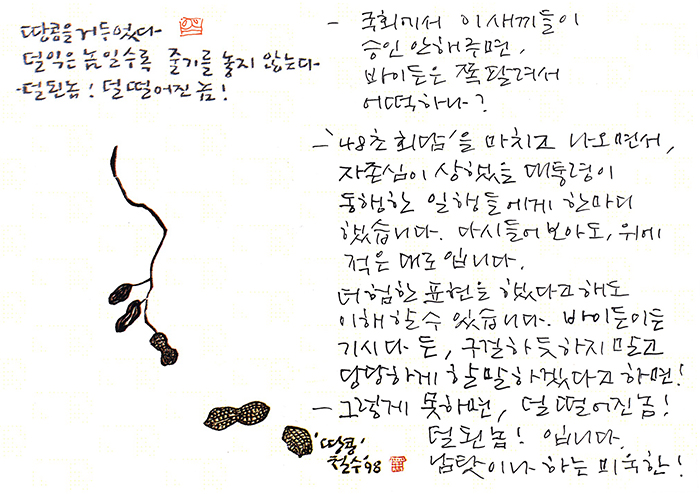 땅콩을 거두었다
덜익은 놈일수록 줄기를 놓지 않는다
덜된놈! 덜떨어진 놈!
'땅콩'
철수'98
- 국회에서 이새끼들이
승인 안해주면,
바이든은 쪽팔려서
어떡하나?
- '48초 회담'을 마치고 나오면서,
자존심이 상했을 대통령이
동행한 일행들에게 한마디
했습니다. 다시들어보아도, 위에
적은 대로입니다.
더 험한 표현을 했다고 해도
이해할 수 있습니다. 바이든이든
기시다 든, 구걸하듯하지 말고
당당하게 할말하겠다고 하면!
- 그렇게 못하면, 덜떨어진놈!
덜된놈! 입니다.
남탓이나 하는 미숙한!